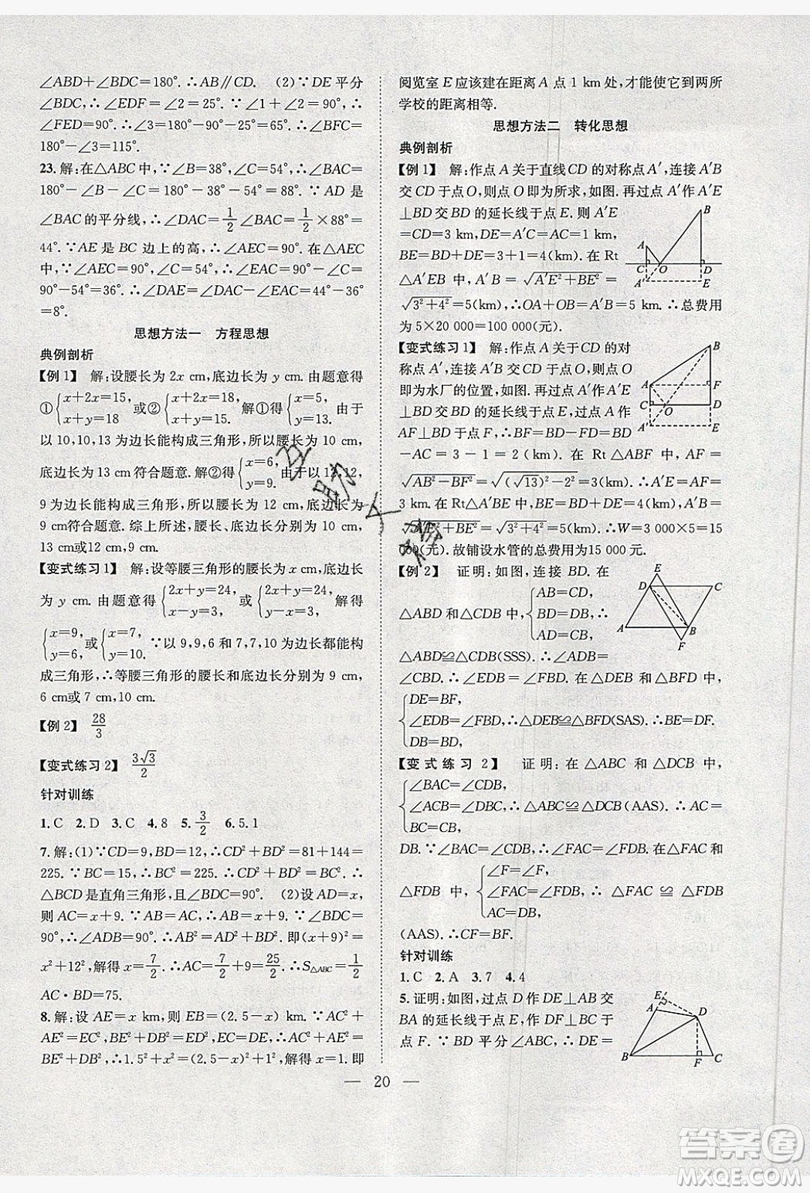 ∠ABD+∠BDC=180°.∴AB∥CD. (2)∵DE平分
∠BDC,∴∠EDF=∠2=25°.∵∠1+∠2=90°,∴
∠FED=90°,∴∠3=180°-90°-∠EDF=
180°-90°-25°=115°.
23.解:在△ABC中,∵∠B=36°,∠C=56°,∴∠BAC=
180°-∠B-∠C=180°-36°-56°=88°.∵AD是
∠BAC的平分线,∴∠DAC=1/2∠BAC=1/2×88°=
44°.∵AE是BC边上的高,∴∠AEC=90°.在△AEC
中,∵∠AEC=90°,∠C=54°,∴∠EAC=90°-∠C=
90°-54°=36°,∴∠DAE=∠DAC-∠EAC=44°-36°
=8°.
思想方法一 方程思想
典例剖析
【例1】 解:设腰长为2x cm,底边长为y cm.由题意得
①{x+2x=15,x+y=18;或②{x+2x=18,x+y=15.解①得{x=5,y=13.由于
以10,10,13为边长能构成三角形,所以腰长为10 cm,
底边长为13 cm符合题意.解②得{x=6,y=9.由于以12,12,
9为边长能构成三角形,所以腰长为12 cm,底边长为
9 cm符合题意.综上所述,腰长为10 cm或12 cm,底边长为
13 cm或9 cm.
【变式练习1】 解:设等腰三角形的腰长为2x cm,底边
长为y cm.由题意得{2x+x=27,x+y=24,或{2x+x=24,x+y=27.解得
{x=9,y=15,或{x=8,y=19.
【例2】 28/3
【变式练习2】 3√3/2
针对训练
1.C 2.D 3.C 4.8 5.3/2 6.5.1
7.解:(1)∵CD=9,BD=12,∴CD²+BD²=81+144=
225.∵BC=15,∴BC²=225.∴CD²+BD²=BC².∴
△BCD是直角三角形,∠BDC=90°. (2)设AD=x,
则AC=x+9.∵AB=AC,∴AB=x+9.∵∠BDC=
90°,∴∠ADB=90°.∴AB²=AD²+BD².即(x+9)²=
x²+12²,解得x=7/2.∴AC=7/2+9=25/2.∴S△ABC=1/2
AC·BD=75.
8.解:设AE=x km,则BE=(2.5-x)km.∵AC²+
AE²=EC²,BE²+DB²=ED²,EC=DE,∴AC²+AE²=
BE²+DB².∴1.5²+x²=(2.5-x)²+1²,解得x=1.即
阅览室E应该建在距离A点1 km处,才能使它到两所
学校的距离相等.
思想方法二 转化思想
典例剖析
【例1】 解:作点A关于直线CD的对称点A′,连接A′B
交CD于点O,点O即为所求,如图.再过点A′作A′E
⊥BD交BD的延长线于点E.则A′E
=CD=3 km,DE=A′C=AC=1 km,
BE=BD+DE=3+1=4(km).在Rt
△A′EB中,A′B=√A′E²+BE²=
√3²+4²=5(km).∴OA+OB=A′B=5 km.∴总费用
为5×20 000=100 000(元).
【变式练习1】 解:作点A关于CD的对
称点A′,连接A′B交CD于点O,则点O
即为水厂的位置,如图.过点A′作A′E
⊥BD交BD的延长线于点E,过点A作
AF⊥BD于点F,则DE=A′C=AC
=1 km,BF=BD-FD=BD-AC=3-1=2(km),AF=
√AB²-BF²=√(√13)²-2²=3(km),∴A′E=AF=
3 km.在Rt△A′BE中,BE=BD+DE=4 km,A′B=
√A′E²+BE²=√3²+4²=5(km).∴W=3 000×5=15
000(元).故铺设水管的总费用为15 000元.
【例2】 证明:如图,连接BD.在
△ABD和△CDB中,{AB=CD,AD=CB,BD=DB,
∴△ABD≌△CDB(SSS).∴∠ADB=
∠CBD.∴∠EDB=∠FBD.在△EDB和△FBD中,
{DE=BF,∠EDB=∠FBD,BD=DB,∴△EDB≌△FBD(SAS).∴BE=DF.
【变式练习2】 证明:在△ABC和△DCB中,
{∠BAC=∠CDB,∠ABC=∠DCB,BC=CB,∴△ABC≌△DCB(AAS).∴AC=
DB.∵∠BAC=∠CDB,∴∠FAC=∠FDB.在△FAC和
△FDB中,{∠F=∠F,∠FAC=∠FDB,AC=DB,∴△FAC≌△FDB
(AAS).∴CF=BF.
针对训练
1.C 2.A 3.7 4.4
5.证明:如图,过点D作DE⊥AB交
BA的延长线于点E,∵BD平分∠ABC,
— 20 —
答案圈
MXQE.COM